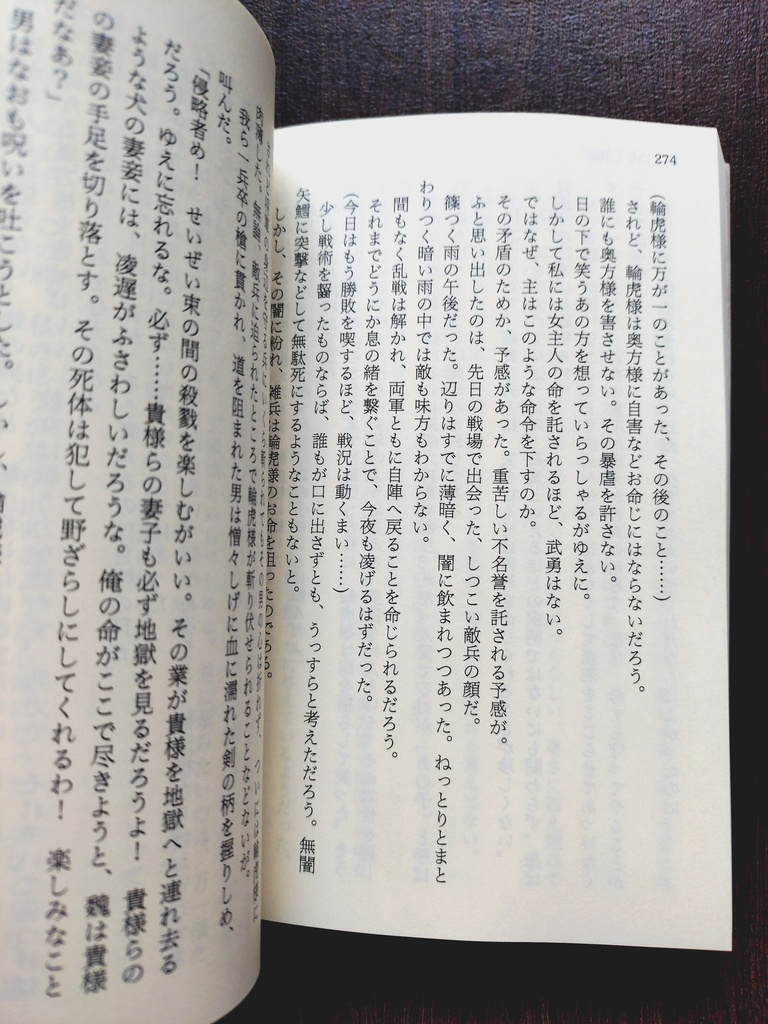 274
(輪虎様に万が一のことがあった、その後のこと……)
されど、輪虎様は奥方様に自害などお命じにはならないだろう。
誰にも奥方様を害させない。その暴虐を許さない。
日の下で笑うあの方を想っていらっしゃるがゆえに。
しかして私には女主人の命を託されるほど、武勇はない。
ではなぜ、主はこのような命令を下すのか。
その矛盾のためか、予感があった。重苦しい不名誉を託される予感が。
ふと思い出したのは、先日の戦場で出会った、しつこい敵兵の顔だ。
篠つく雨の午後だった。辺りはすでに薄暗く、闇に飲まれつつあった。ねっとりとまと
わりつく暗い雨の中では敵も味方もわからない。
間もなく乱戦は解かれ、両軍ともに自陣へ戻ることを命じられるだろう。
それまでどうにか息の緒を繋ぐことで、今夜も凌げるはずだった。
(今日はもう勝敗を喫するほど、戦況は動くまい……)
少し戦術を齧ったものならば、誰もが口に出さずとも、うっすらと考えただろう。無闇
矢鱈に突撃などして無駄死にするようなこともないと。
しかし、その闇に紛れ、雑兵は輪虎様のお命を狙ったのである。
いくら斬られてもその男の心は折れず、ついには輪虎様に
肉薄した。無論、敵兵に迫られたところで輪虎様が斬り伏せられることなどないが。
我ら一兵卒の槍に貫かれ、道を阻まれた男は憎々しげに血に濡れた剣の柄を握りしめ、
叫んだ。
「侵略者め! せいぜい束の間の殺戮を楽しむがいい。その業が貴様を地獄へと連れ去る
だろう。ゆえに忘れるな。必ず……貴様らの妻子も必ず地獄を見るだろうよ! 貴様らの
ような犬の妻妾には、凌遅がふさわしいだろうな。俺の命がここで尽きようと、魏は貴様
の妻妾の手足を切り落とす。その死体は犯して野ざらしにしてくれるわ! 楽しみなこと
だなあ?」
男はなおも呪いを吐こうとした。